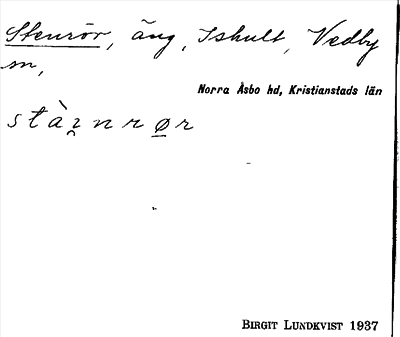 Stenrör, äng, Ishult, Vedby
sn,
Norra Åsbo hd, Kristianstads län
BIRGIT LUNDKVIST 1937